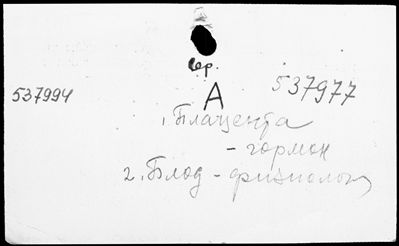 сер.
537994
А
537977
1. Плацента
- гормон
2. Плод - физиолог